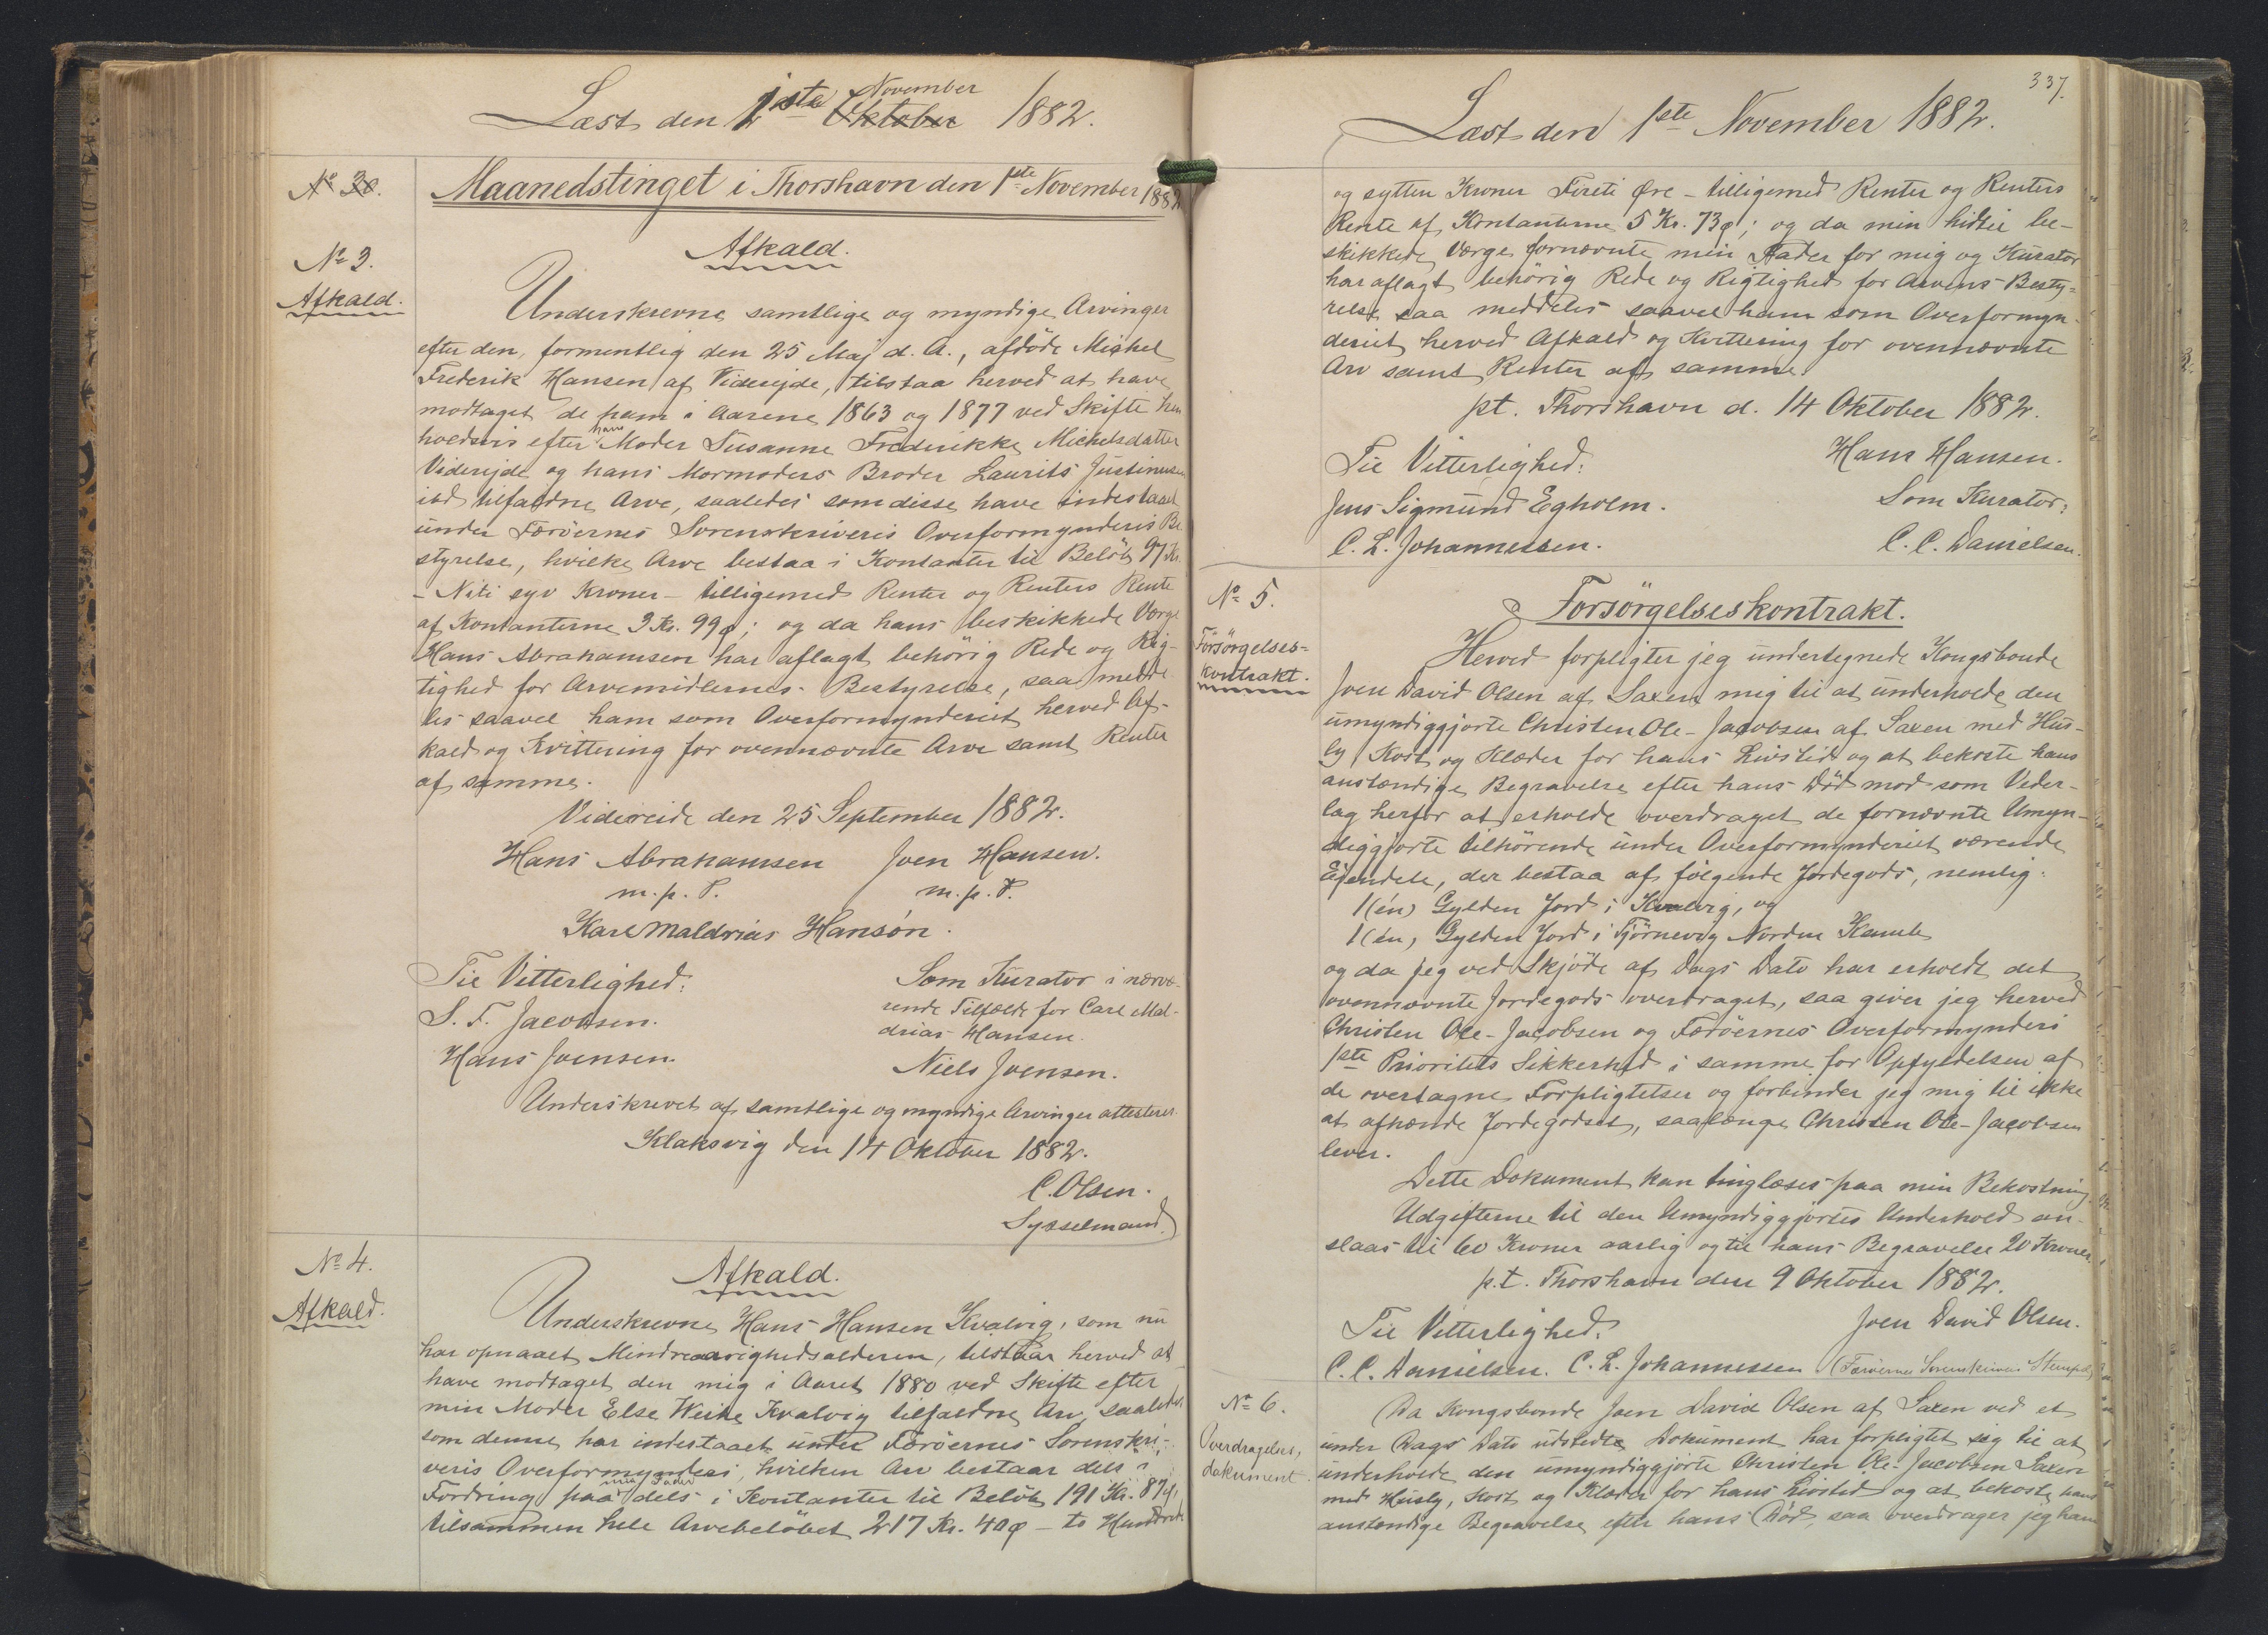 Læst den 1ste November Oktober 1882.
No 30.
Maanedstinget i Thorshavn den 1ste November 1882
No 3.
Afkald.
Afkald.
Underskrevne samtlige og myndige Arvinger
efter den, formentlig den 25 Maj d. A., afdöde Michel
Frederik Hansen af Viderejde, tilstaa herved at have
modtaget de ham i Aarene 1863 og 1877 ved Skifte hen
holdsvis efter hans Moder Susanne Frederikke Michelsdatter
Viderejde og hans Mormoders Broder Laurits Justinusen
ibd tilfaldne Arve, saaledes som disse have indestaaet
under Færöernes Sorenskriveris Overformynderis Be
styrelse, hvilke Arve bestaa i Kontanter til Belöb 97 Kr.
- Niti syv Kroner - tilligemed Renter og Renters Rente
af Kontanterne 3 Kr. 99 ø; og da hans beskikkede Værge
Hans Abrahamsen har aflagt behörig Rede og Rig-
tighed for Arvemidlernes Bestyrelse, saa medde
les saavel ham som Overformynderiet herved Af-
kald og Kvittering for ovennævnte Arve samt Renter
af samme.
Videreide den 25 September 1882.
Hans Abrahamsen Joen Hansen.
m. p. P. m. p. P.
Karl Maldrias Hansón.
Til Vitterlighed: Som Kurator i nærvæ-
S. F. Jacobsen. rende Tilfælde for Carl Mal-
drias Hansen.
Hans Joensen. Niels Joensen.
Underskrevet af samtlige og myndige Arvinger attesteres.
Klaksvig den 14 Oktober 1882.
C. Olsen.
Sysselmand.
No 4.
Afkald.
Afkald.
Underskrevne Hans Hansen Kvalvig, som nu
har opnaaet Mindreaarighedsalderen, tilstaar herved at
have modtaget den mig i Aaret 1880 ved Skifte efter
min Moder Else Kvalvig tilfaldne Arv, saaledes
som denne har indestaaet under Færöernes Sorenskri-
veris Overformynderi, hvilken Arv bestaar dels i
Fordring paa min Fader dels i Kontanter til Belöb 191 Kr. 87 ø,
tilsammen hele Arvebelöbet 217 Kr. 40 ø - to Hundrede
337.
Læst den 1ste November 1882.
og sytten Kroner Firti Øre - tilligemed Renter og Renters
Rente af Kontanterne 5 Kr. 73 ø; og da min hidtil be-
skikkede Værge fornævnte min Fader for mig og Kurator
har aflagt behörig Rede og Rigtighed for Arvens Besty-
relse saa meddeles saavel ham som Overformyn-
deriet herved Afkald og Kvittering for ovennævnte
Arv samt Renter af samme.
pt. Thorshavn d. 14 Oktober 1882.
Til Vitterlighed: Hans Hansen.
Jens Sigmund Egholm. Som Kurator:
C. L. Johannessen. C. C. Danielsen.
No 5.
Forsörgelses-
kontrakt.
Forsörgelseskontrakt.
Herved forpligter jeg undertegnede Kongsbonde
Joen David Olsen af Saxen mig til at underholde den
umyndiggjorte Christen Ole-Jacobsen af Saxen med Hus-
ly, Kost og Klæder for hans Livstid og at bekoste hans
anstændige Begravelse efter hans Död mod som Veder-
lag herfor at erholde overdraget de fornævnte Umyn-
diggjorte tilhörende under Overformynderiet værende
Ejendele, der bestaa af fölgende Jordegods, nemlig:
1 (én) Gylden Jord i Kvalvig, og
1 (én) Gylden Jord i Tjörnevig Norden Kamb
og da jeg ved Skjöde af Dags Dato har erholdt det
ovennævnte Jordegods overdraget, saa giver jeg herved
Christen Ole-Jacobsen og Færöernes Overformynderi
1ste Prioritets Sikkerhed i samme for Opfyldelsen af
de overtagne Forpligtelser og forbinder jeg mig til ikke
at afhænde Jordegodset, saalænge Christen Ole-Jacobsen
lever.
Dette Dokument kan tinglæses paa min Bekostning.
Udgifterne til den Umyndiggjortes Underhold an-
slaas til 60 Kroner aarlig og til hans Begravelse 20 Kroner.
p.t. Thorshavn den 9 Oktober 1882.
Til Vitterlighed: Joen David Olsen.
C. C. Danielsen. C. L. Johannessen (Færöernes Sorenskriveris Stempel)
No 6.
Overdragelses,
dokument.
Da Kongsbonde Joen David Olsen af Saxen ved et
under Dags Dato udstedte Dokument har forpligtet sig til at
underholde den umyndiggjorte Christen Ole-Jacobsen Saxen
med Husly, Kost og Klæder for hans Livstid og at bekoste hans
anstændige Begravelse efter hans Död, saa overdrager jeg ham